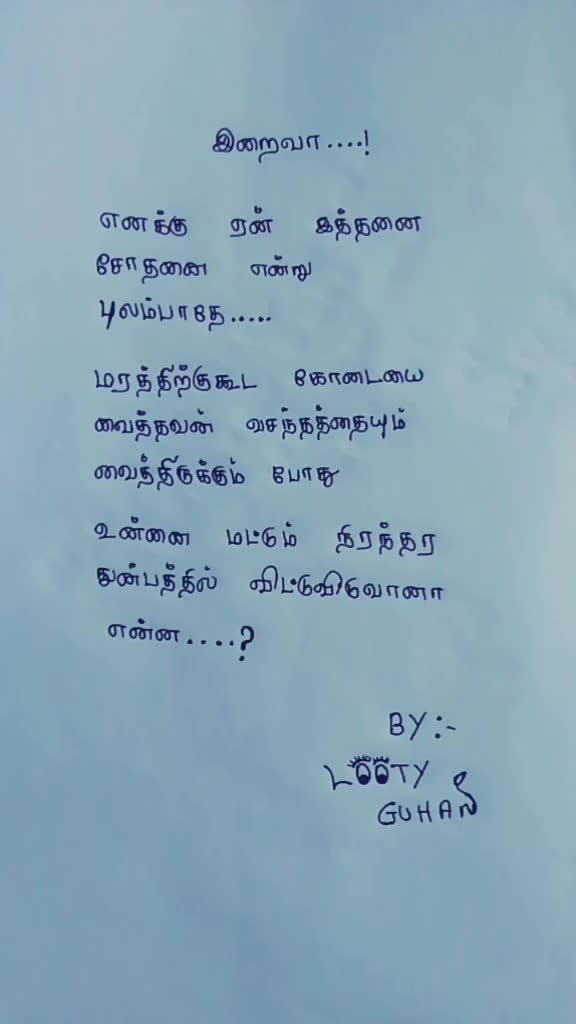 இறைவா....!
எனக்கு ஏன் இத்தனை
சோதனை என்று
புலம்பாதே.....
மரத்திற்குகூட கோடையை
வைத்தவன் வசந்தத்தையும்
வைத்திருக்கும் போது
உன்னை மட்டும் நிரந்தர
துன்பத்தில் விட்டுவிடுவோனா
என்ன....?
BY :-
LOOTY
GUHAN